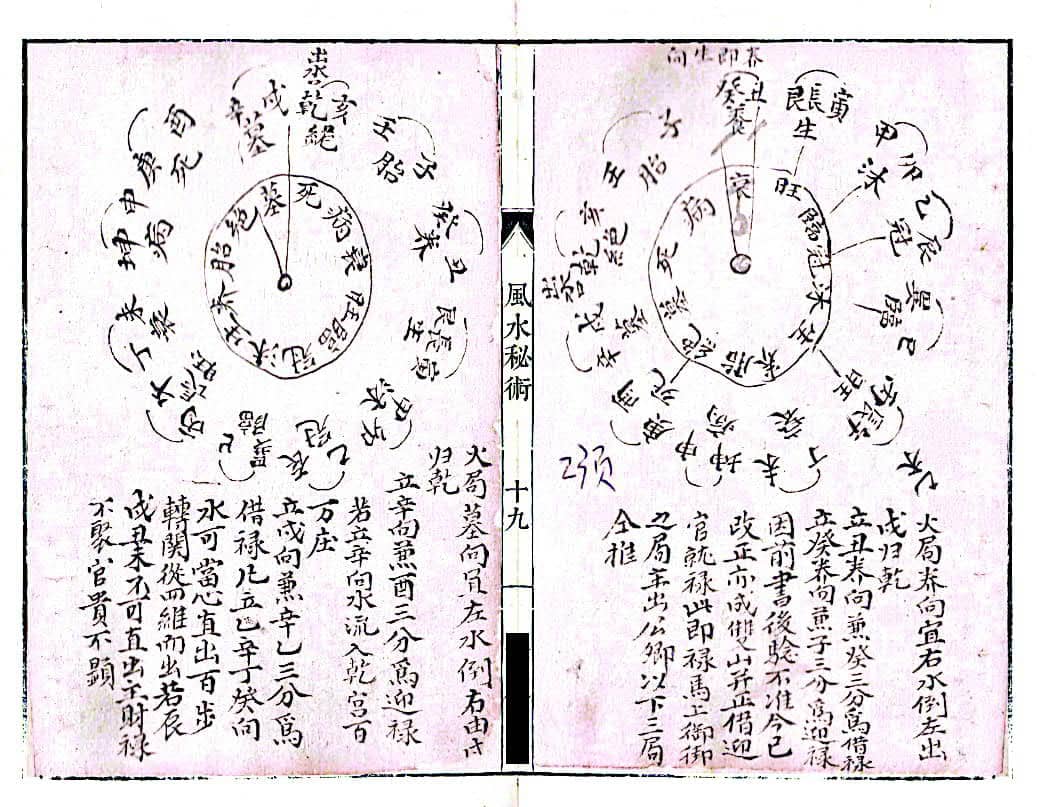 养即生向
丑
癸養
寅
艮長
生
甲卯
沐
乙辰
冠
巽臨巳
丙
旺
丁未
衰
坤申
病
庚酉
死
辛戌
墓
出容
乾亥
絕
壬子
胎
衰
旺
臨
冠
沐
生
养
胎
絕
墓
死
病
火局养向宜右水倒左出
戌归乾
立丑养向兼癸三分為借禄
立癸养向兼子三分為迎禄
因前書後驗不准今已
改正亦成雙山并正借迎
官就禄此即禄馬上御街
之局主出公卿以下三局
仝推
風水秘術
十九
出容
乾亥
絕
壬子
胎
癸养丑
艮長寅
生
甲卯
沐
乙辰
冠
巽巳
臨
丙午
旺
丁未
衰
坤申
病
庚酉
死
辛戌
墓
死
病
衰
旺
臨
冠
沐
生
养
胎
絕
墓
火局墓向宜左水倒右由戌
归乾
立辛向兼酉三分為迎禄
若立辛向水流入乾宫百
万庄
立戌向兼辛乙三分為
借禄凡立乙辛丁癸向
水可當心直出百步
轉關從四維而出若辰
戌丑未不可直出主財禄
不聚官貴不顯